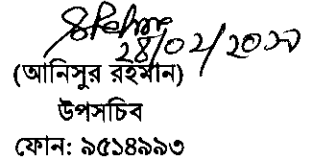 28/02/2020
(আনিসুর রহমান)
উপসচিব
ফোন: ৯৫১৪৯৯৩